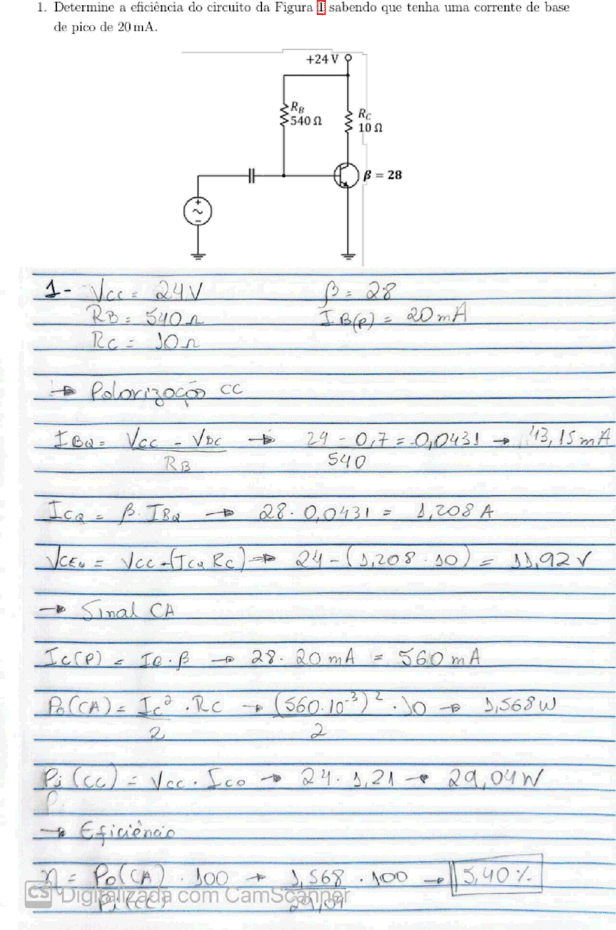 1. Determine a eficiência do circuito da Figura 1 sabendo que tenha uma corrente de base
de pico de 20 mA.
+24 V
R_B
540 Ω
R_C
10 Ω
β = 28
1- Vcc = 24V β = 28
RB = 540 Ω IB(p) = 20 mA
Rc = 10 Ω
→ Polorização CC
IBQ = Vcc - VBC / RB → 24 - 0,7 / 540 = 0,0431 → 43,15 mA
ICQ = β · IBQ → 28 · 0,0431 = 1,208 A
VCEQ = Vcc - (ICQ Rc) → 24 - (1,208 · 10) = 11,92 V
→ Sinal CA
Ic(P) = IB · β → 28 · 20 mA = 560 mA
Po(CA) = Ic² / 2 · Rc → (560·10⁻³)² / 2 · 10 → 1,568 W
Pi (CC) = Vcc · Ico → 24 · 1,21 → 29,04 W
→ Eficiência
η = Po(CA) / Pi(CC) · 100 → 1,568 / 29,04 · 100 → 5,40 %
CS Digitalizada com CamScanner